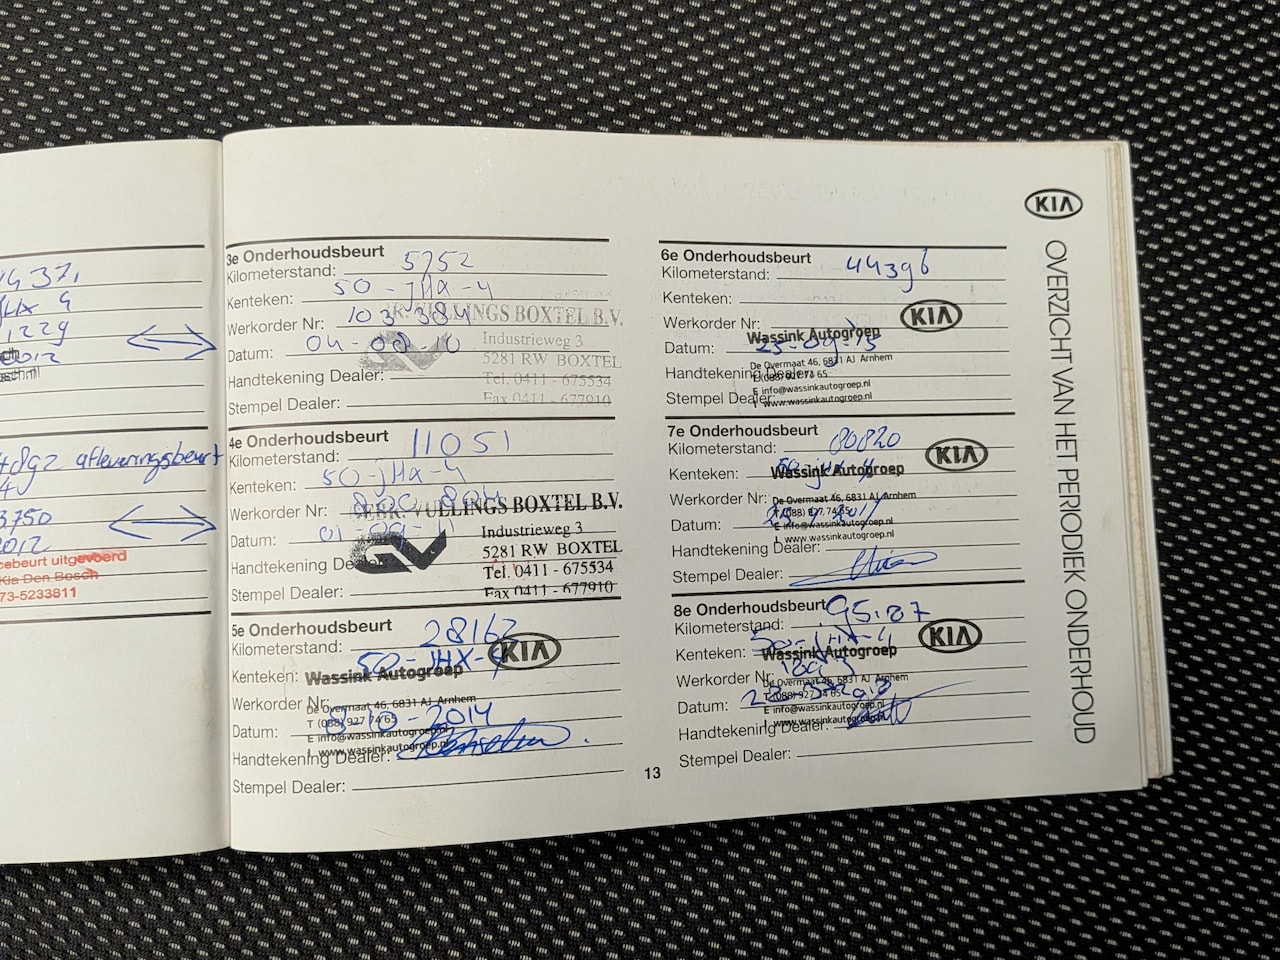 437,
HX 4
1229
2012
afleveringsbeurt
3750
2012
cebeurt uitgevoerd
Kia Den Bosch
73-5233811
3e Onderhoudsbeurt
Kilometerstand: 5752
Kenteken: 50-JHX-4
Werkorder Nr: 103384
Datum: 04-08-10
Handtekening Dealer:
Stempel Dealer:
VULLINGS BOXTEL B.V.
Industrieweg 3
5281 RW BOXTEL
Tel. 0411 - 675534
Fax 0411 - 677910
4e Onderhoudsbeurt
Kilometerstand: 11051
Kenteken: 50-JHX-4
Werkorder Nr:
Datum:
Handtekening Dealer:
Stempel Dealer:
GEBR. VULLINGS BOXTEL B.V.
Industrieweg 3
5281 RW BOXTEL
Tel. 0411 - 675534
Fax 0411 - 677910
5e Onderhoudsbeurt
Kilometerstand: 28162
Kenteken: 50-JHX-4
Werkorder Nr:
Datum: 2014
Handtekening Dealer:
Stempel Dealer:
KIA
Wassink Autogroep
De Overmaat 46, 6831 AJ Arnhem
T (088) 927 74 65
E info@wassinkautogroep.nl
I www.wassinkautogroep.nl
13
6e Onderhoudsbeurt
Kilometerstand: 44396
Kenteken:
Werkorder Nr:
Datum: 23-09-15
Handtekening Dealer:
Stempel Dealer:
KIA
Wassink Autogroep
De Overmaat 46, 6831 AJ Arnhem
E info@wassinkautogroep.nl
I www.wassinkautogroep.nl
7e Onderhoudsbeurt
Kilometerstand: 80820
Kenteken: 50-JHX-4
Werkorder Nr:
Datum:
Handtekening Dealer:
Stempel Dealer:
KIA
Wassink Autogroep
De Overmaat 46, 6831 AJ Arnhem
E info@wassinkautogroep.nl
I www.wassinkautogroep.nl
8e Onderhoudsbeurt
Kilometerstand: 95.187
Kenteken: 50-JHX-4
Werkorder Nr:
Datum:
Handtekening Dealer:
Stempel Dealer:
KIA
Wassink Autogroep
De Overmaat 46, 6831 AJ Arnhem
T (088) 927 74 65
E info@wassinkautogroep.nl
I www.wassinkautogroep.nl
KIA
OVERZICHT VAN HET PERIODIEK ONDERHOUD